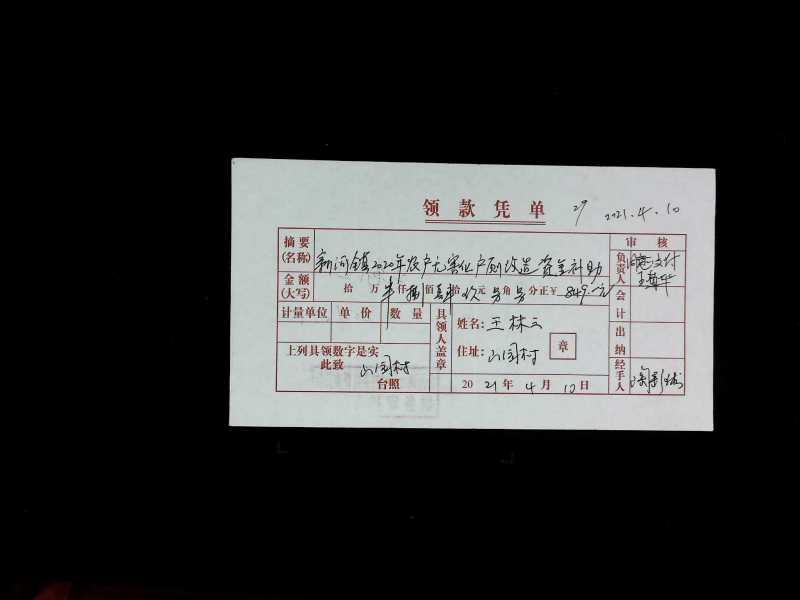 领款凭单 29 2021.4.10
摘要(名称) 新河镇2020年农户无害化户厕改造资金补助
审核
负责人 同意支付
金额(大写) 拾万仟佰拾元角分正￥ 849.00元
计量单位 单价 数量
具领人盖章
姓名：王林云
住址：山园村
章
会计
出纳
上列具领数字是实
此致 山园村
台照
2021年4月10日
经手人